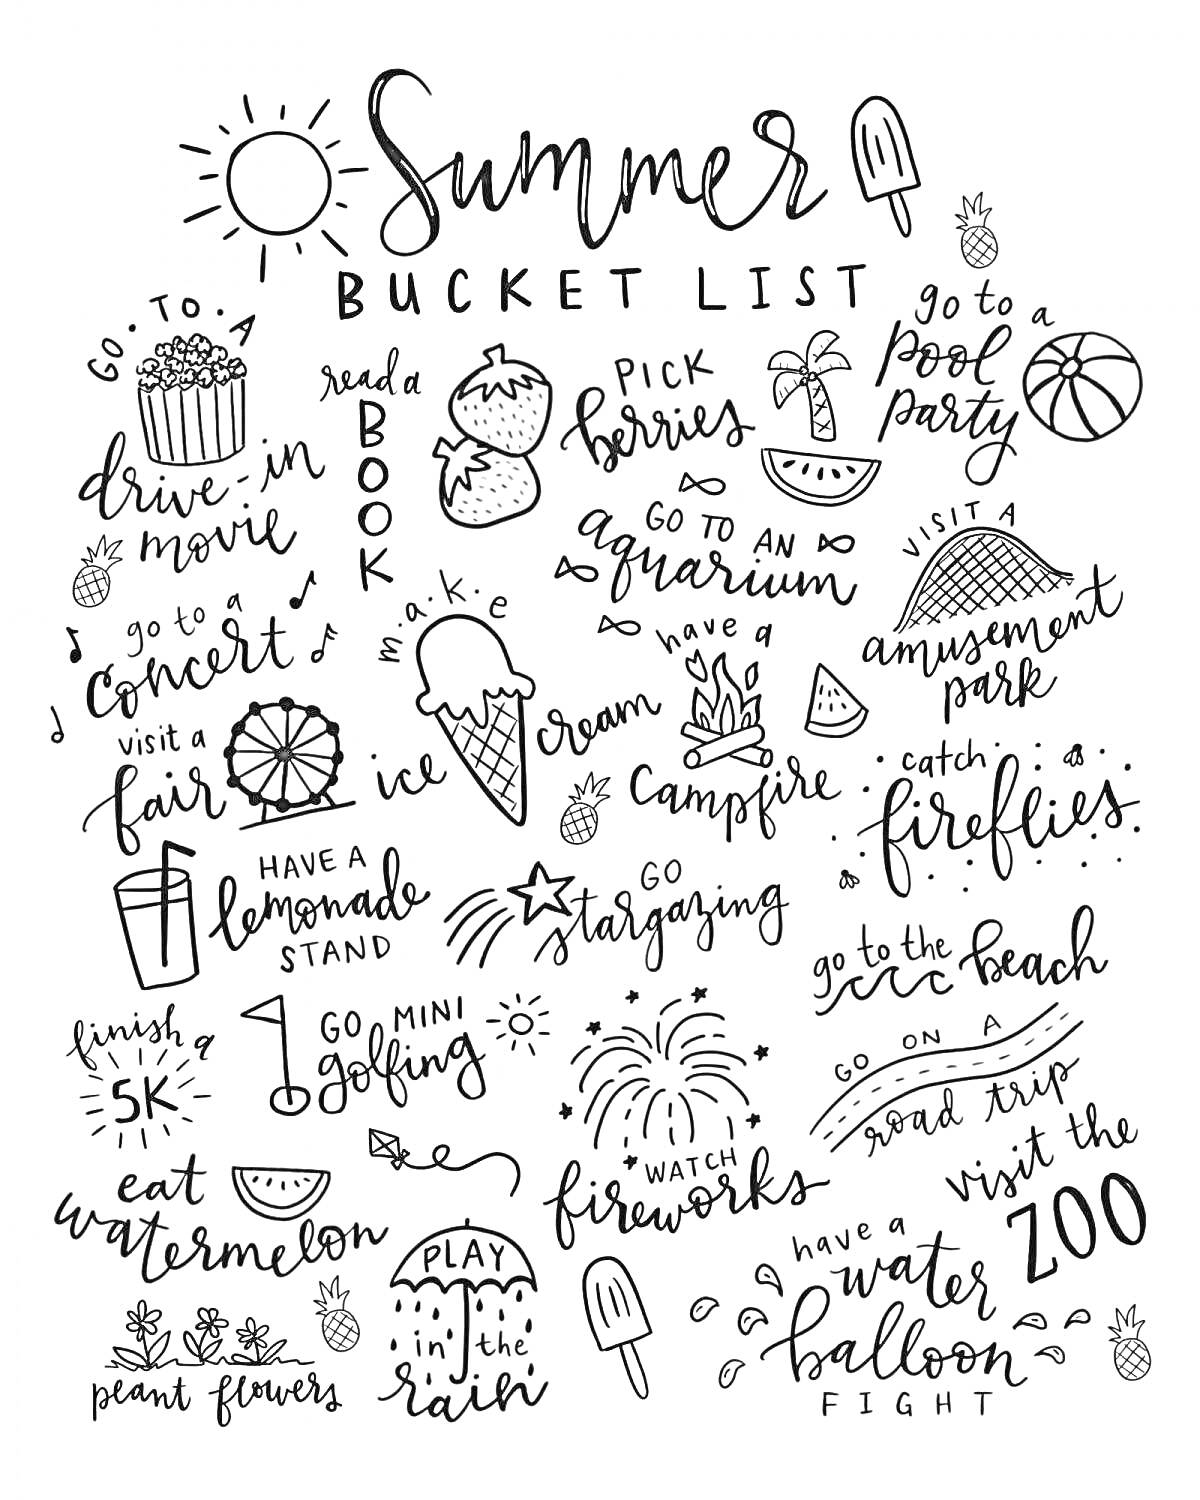 Summer
BUCKET LIST
GO·TO·A
drive-in
movie
read a
BOOK
PICK
berries
go to a
pool
party
GO TO AN
aquarium
VISIT A
amusement
park
go to a
concert
m·a·k·e
ice cream
have a
campfire
visit a
fair
catch
fireflies
HAVE A
lemonade
STAND
GO
stargazing
go to the beach
finish a
5K
GO MINI
golfing
WATCH
fireworks
GO ON A
road trip
visit the
ZOO
eat
watermelon
PLAY
in the
rain
have a
water
balloon
FIGHT
plant flowers